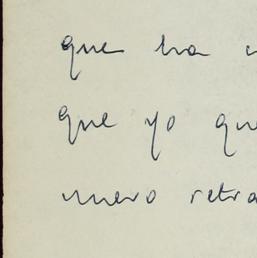 que ha
que yo que
nuevo retra